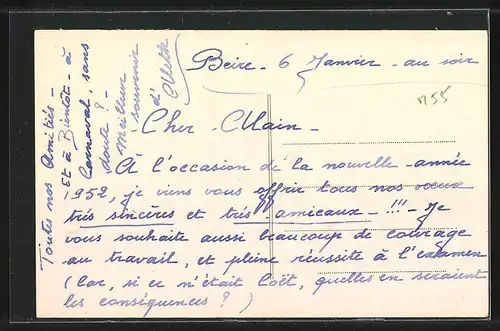 Beire - 6 Janvier - au soir
755
Cher Alain -
À l'occasion de la nouvelle - année
1952, je viens vous offrir tous nos vœux
très sincères et très amicaux - !!! - Je
vous souhaite aussi beaucoup de courage
au travail, et pleine réussite à l'examen
(Car, si ce n'était quelles en seraient
les conséquences ? )
Toutes nos Amitiés -
Et à Bientôt - à
Carnaval, sans
doute ? -
Meilleur
souvenir
d'